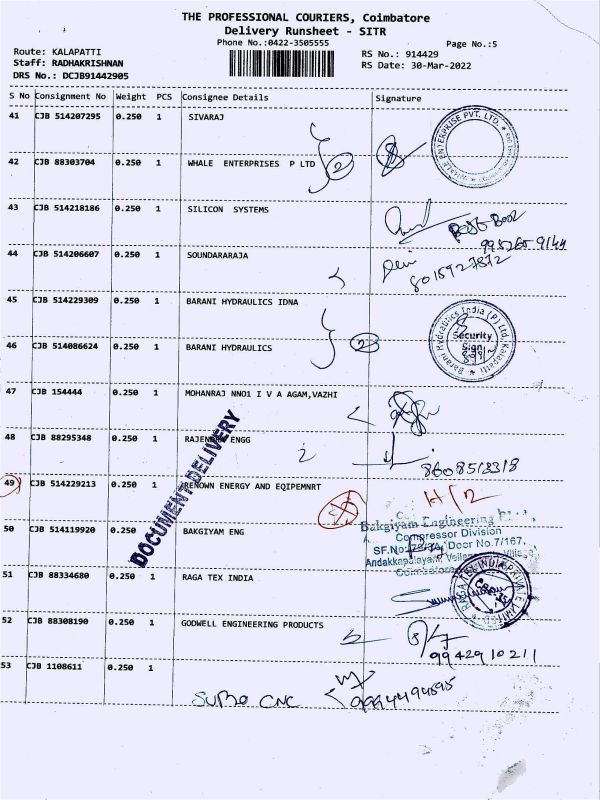 THE PROFESSIONAL COURIERS, Coimbatore
Delivery Runsheet - SITR
Phone No.:0422-3505555
Page No.:5
Route: KALAPATTI
Staff: RADHAKRISHNAN
DRS No.: DCJB91442905
RS No.: 914429
RS Date: 30-Mar-2022
S No Consignment No Weight PCS Consignee Details Signature
41 CJB 514207295 0.250 1 SIVARAJ
WHALE ENTERPRISE PVT. LTD.
42 CJB 88303704 0.250 1 WHALE ENTERPRISES P LTD 2
43 CJB 514218186 0.250 1 SILICON SYSTEMS
44 CJB 514206607 0.250 1 SOUNDARARAJA
8015927872
45 CJB 514229309 0.250 1 BARANI HYDRAULICS IDNA
Barani Hydraulics India (P) Ltd, Kalapatti
Security
Sign
46 CJB 514086624 0.250 1 BARANI HYDRAULICS 2
47 CJB 154444 0.250 1 MOHANRAJ NNO1 I V A AGAM,VAZHI
48 CJB 88295348 0.250 1 RAJENDRA ENGG
8608513318
DOCUMENT DELIVERY
49 CJB 514229213 0.250 1 RENOWN ENERGY AND EQIPEMNRT
50 CJB 514119920 0.250 1 BAKGIYAM ENG
Bakgiyam Engineering
Compressor Division
Door No.7/167,
Andakkapalayam,
Coimbatore
51 CJB 88334680 0.250 1 RAGA TEX INDIA
RAGA TEX INDIA PRIVATE LIMITED
52 CJB 88308190 0.250 1 GODWELL ENGINEERING PRODUCTS
9942910211
53 CJB 1108611 0.250 1
CNC 9944494895